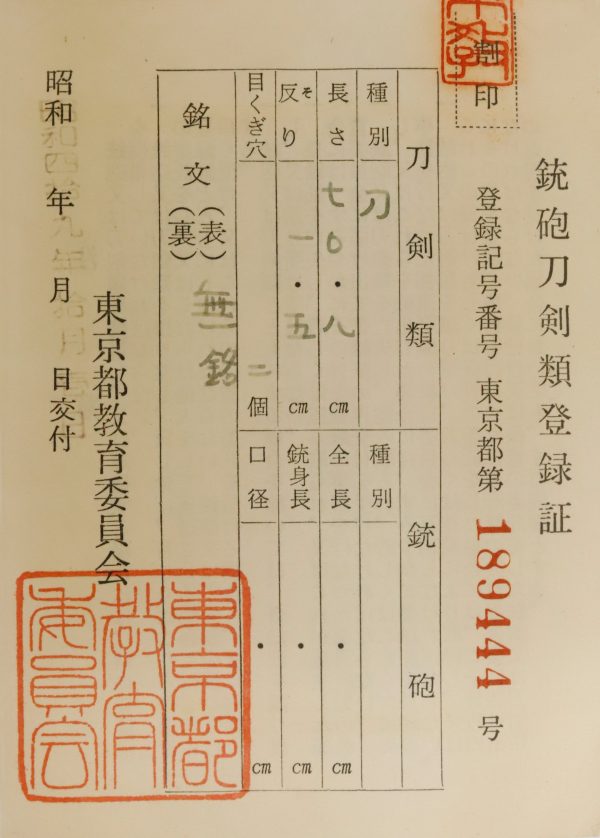 銃砲刀剣類登録証
割印
登録記号番号 東京都第 189444 号
刀剣類
銃砲
種別 刀
種別
長さ 七〇・八 cm
全長 ・ cm
反り そ 一・五 cm
銃身長 ・ cm
目くぎ穴 二 個
口径 ・ cm
銘文 (表) (裏) 無銘
東京都教育委員会
昭和 年 月 日交付
昭和四拾九年拾月壱日
東京都
教育
委員会